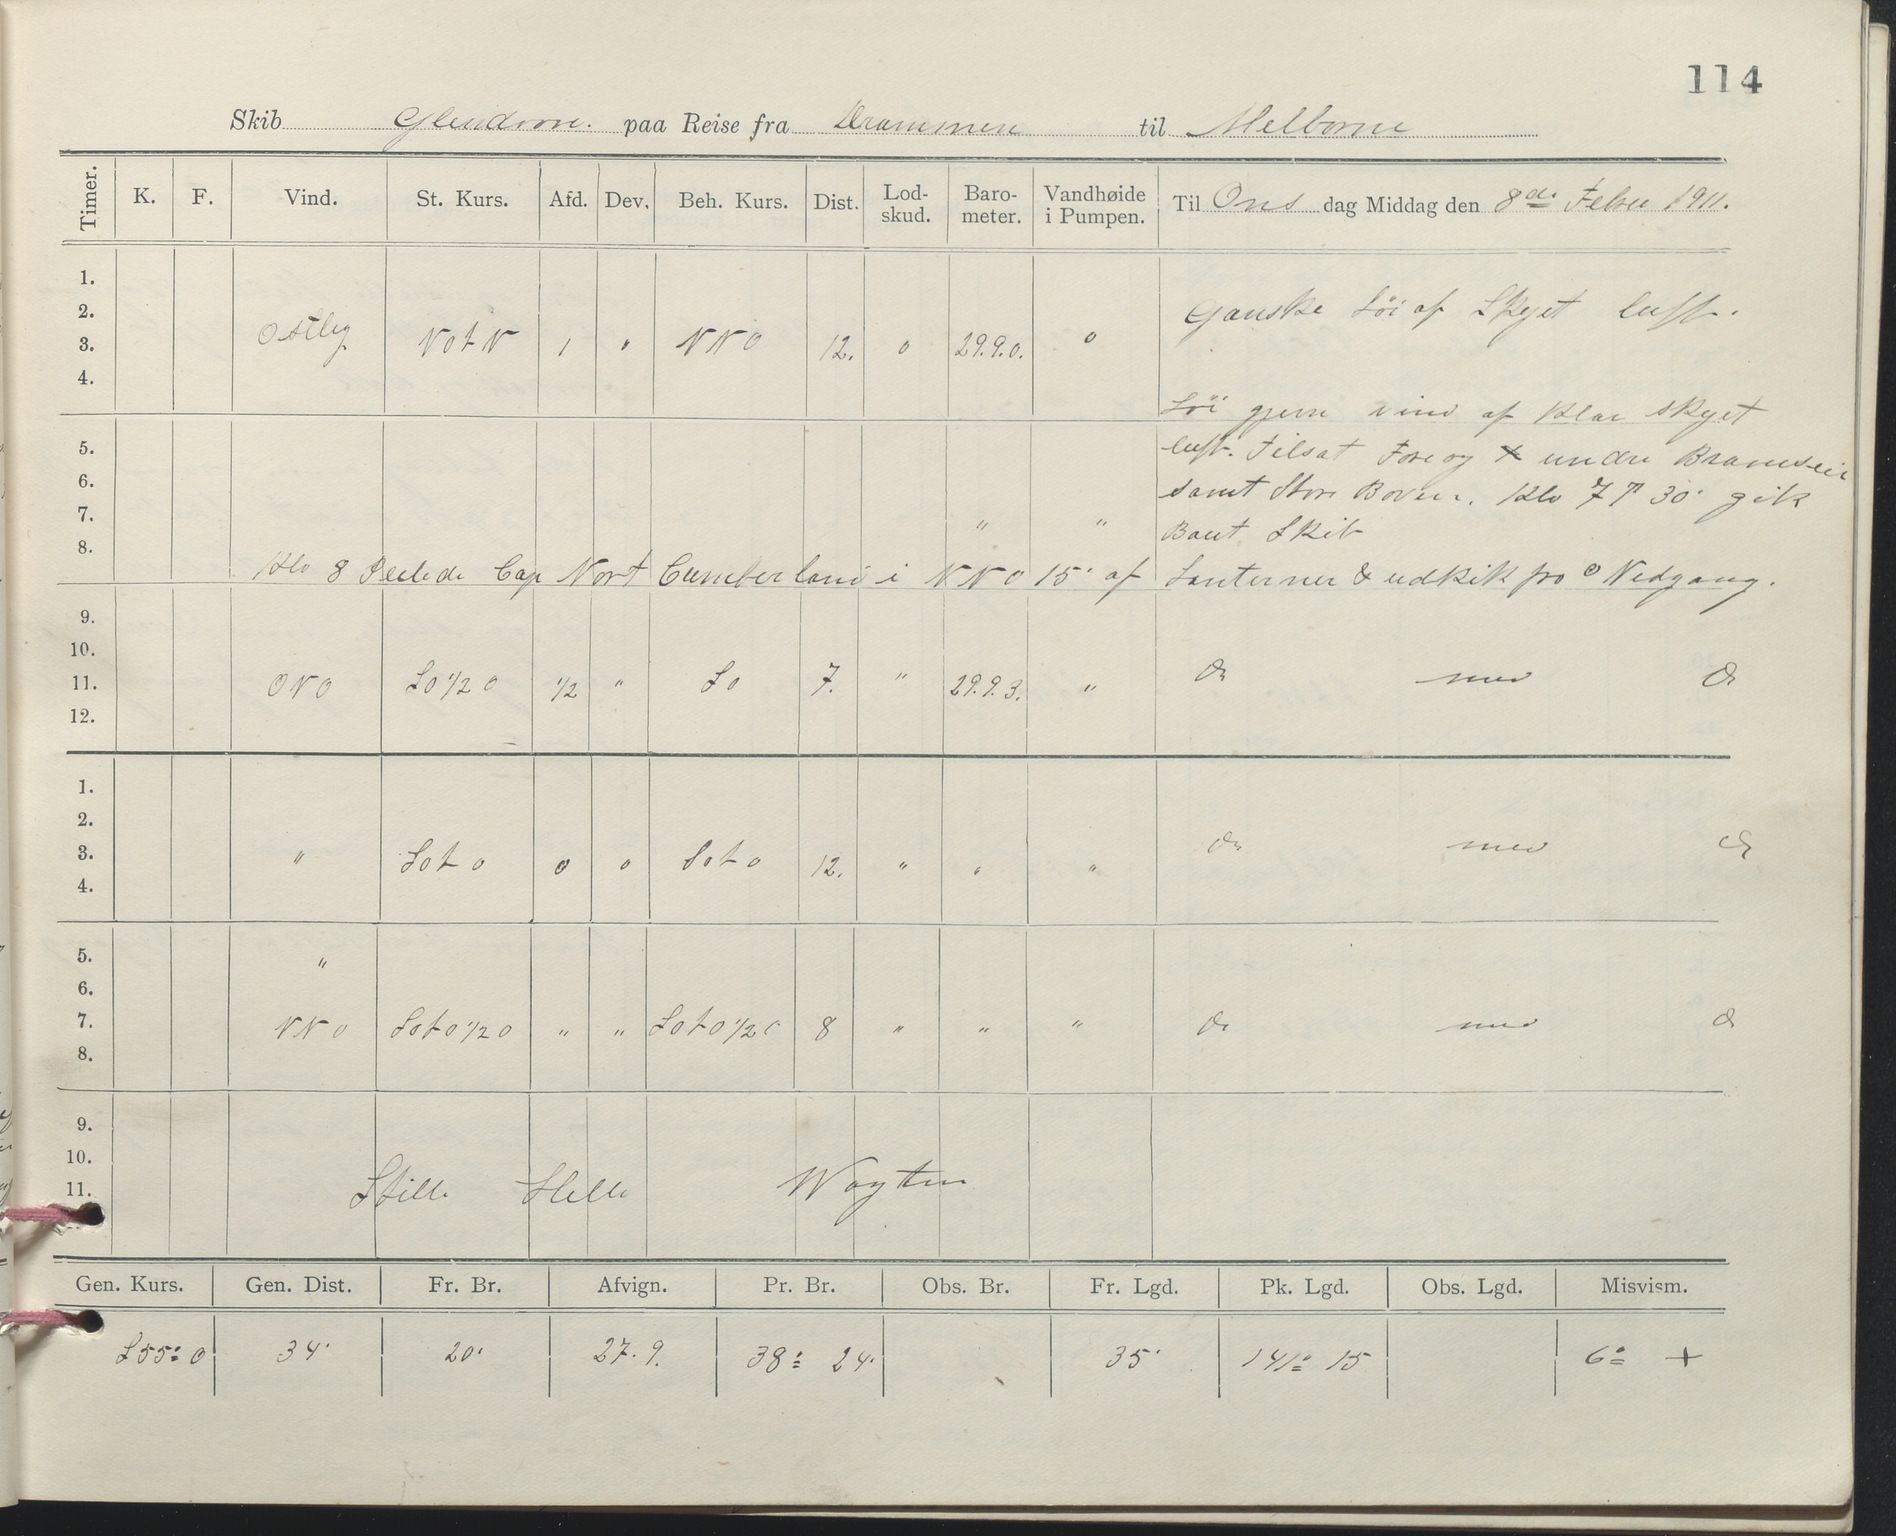 114
Skib Glendoon. paa Reise fra Drammen til Melborne
Timer. K. F. Vind. St. Kurs. Afd. Dev. Beh. Kurs. Dist. Lod-skud. Baro-meter. Vandhøide i Pumpen. Til Ons dag Middag den 8de Febru 1911.
1.
2. Ganske Löi af Skyet luft.
3. Ostleg NotN 1 " NNO 12. 0 29.9.0. 0
4.
Löi gjem vind af Klar skyet
5. luft. Tilsat Fore og undre Bramseil
6. samt Store Boven. Klo 7 T 30' gik
7. " " Baut Skib
8.
Klo 8 Peilede Cap Nort Cumberland i NNO 15' af Lanterner & udkik fro Nedgang.
9.
10.
11. ONO So 1/2 O 1/2 " So 7. " 29.9.3. " Do med Do
12.
1.
2.
3. " Sot O 0 0 Sot O 12. " " " Do med Do
4.
5. "
6.
7. NNO Soto 1/2 O " " Soto 1/2 O 8 " " " Do med Do
8.
9.
10.
11. Stille Stille Wagten
Gen. Kurs. Gen. Dist. Fr. Br. Afvign. Pr. Br. Obs. Br. Fr. Lgd. Pk. Lgd. Obs. Lgd. Misvism.
S55° O 34' 20' 27.9. 38° 24' 35' 141° 15 6° +